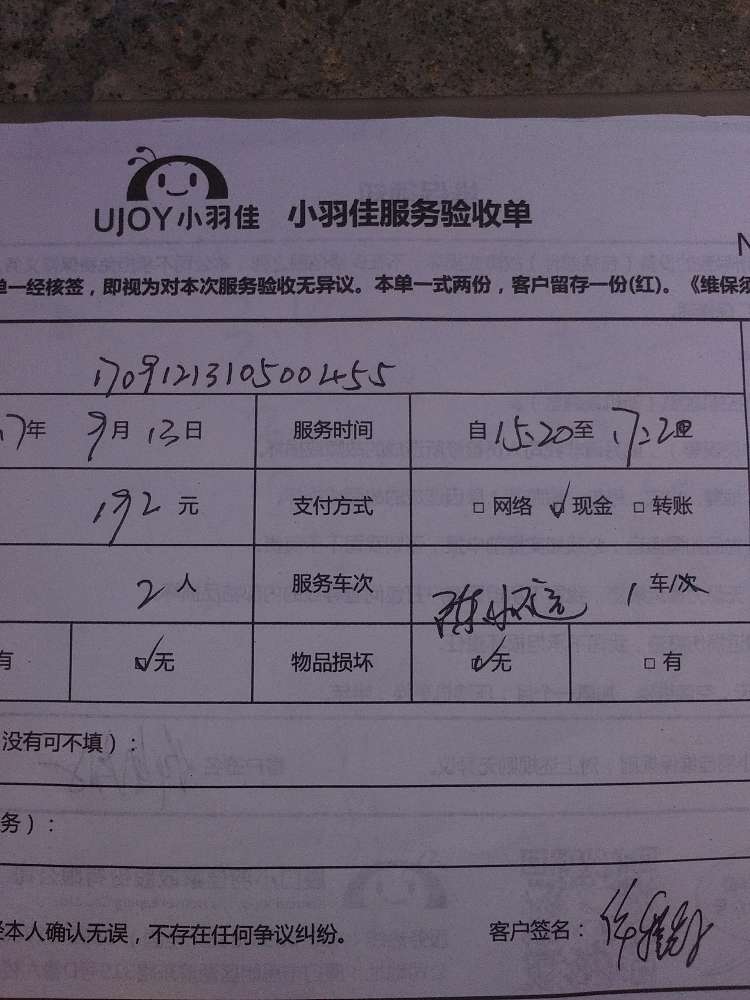 UJOY小羽佳 小羽佳服务验收单
单一经核签，即视为对本次服务验收无异议。本单一式两份，客户留存一份(红)。《维保须
1709121310500455
17年 9月 13日 服务时间 自 15:20至 17:20
192 元 支付方式 □ 网络 ☑ 现金 □ 转账
2 人 服务车次 1 车/次
有 ☑无 物品损坏 ☑无 □ 有
没有可不填）：
务）：
经本人确认无误，不存在任何争议纠纷。 客户签名：